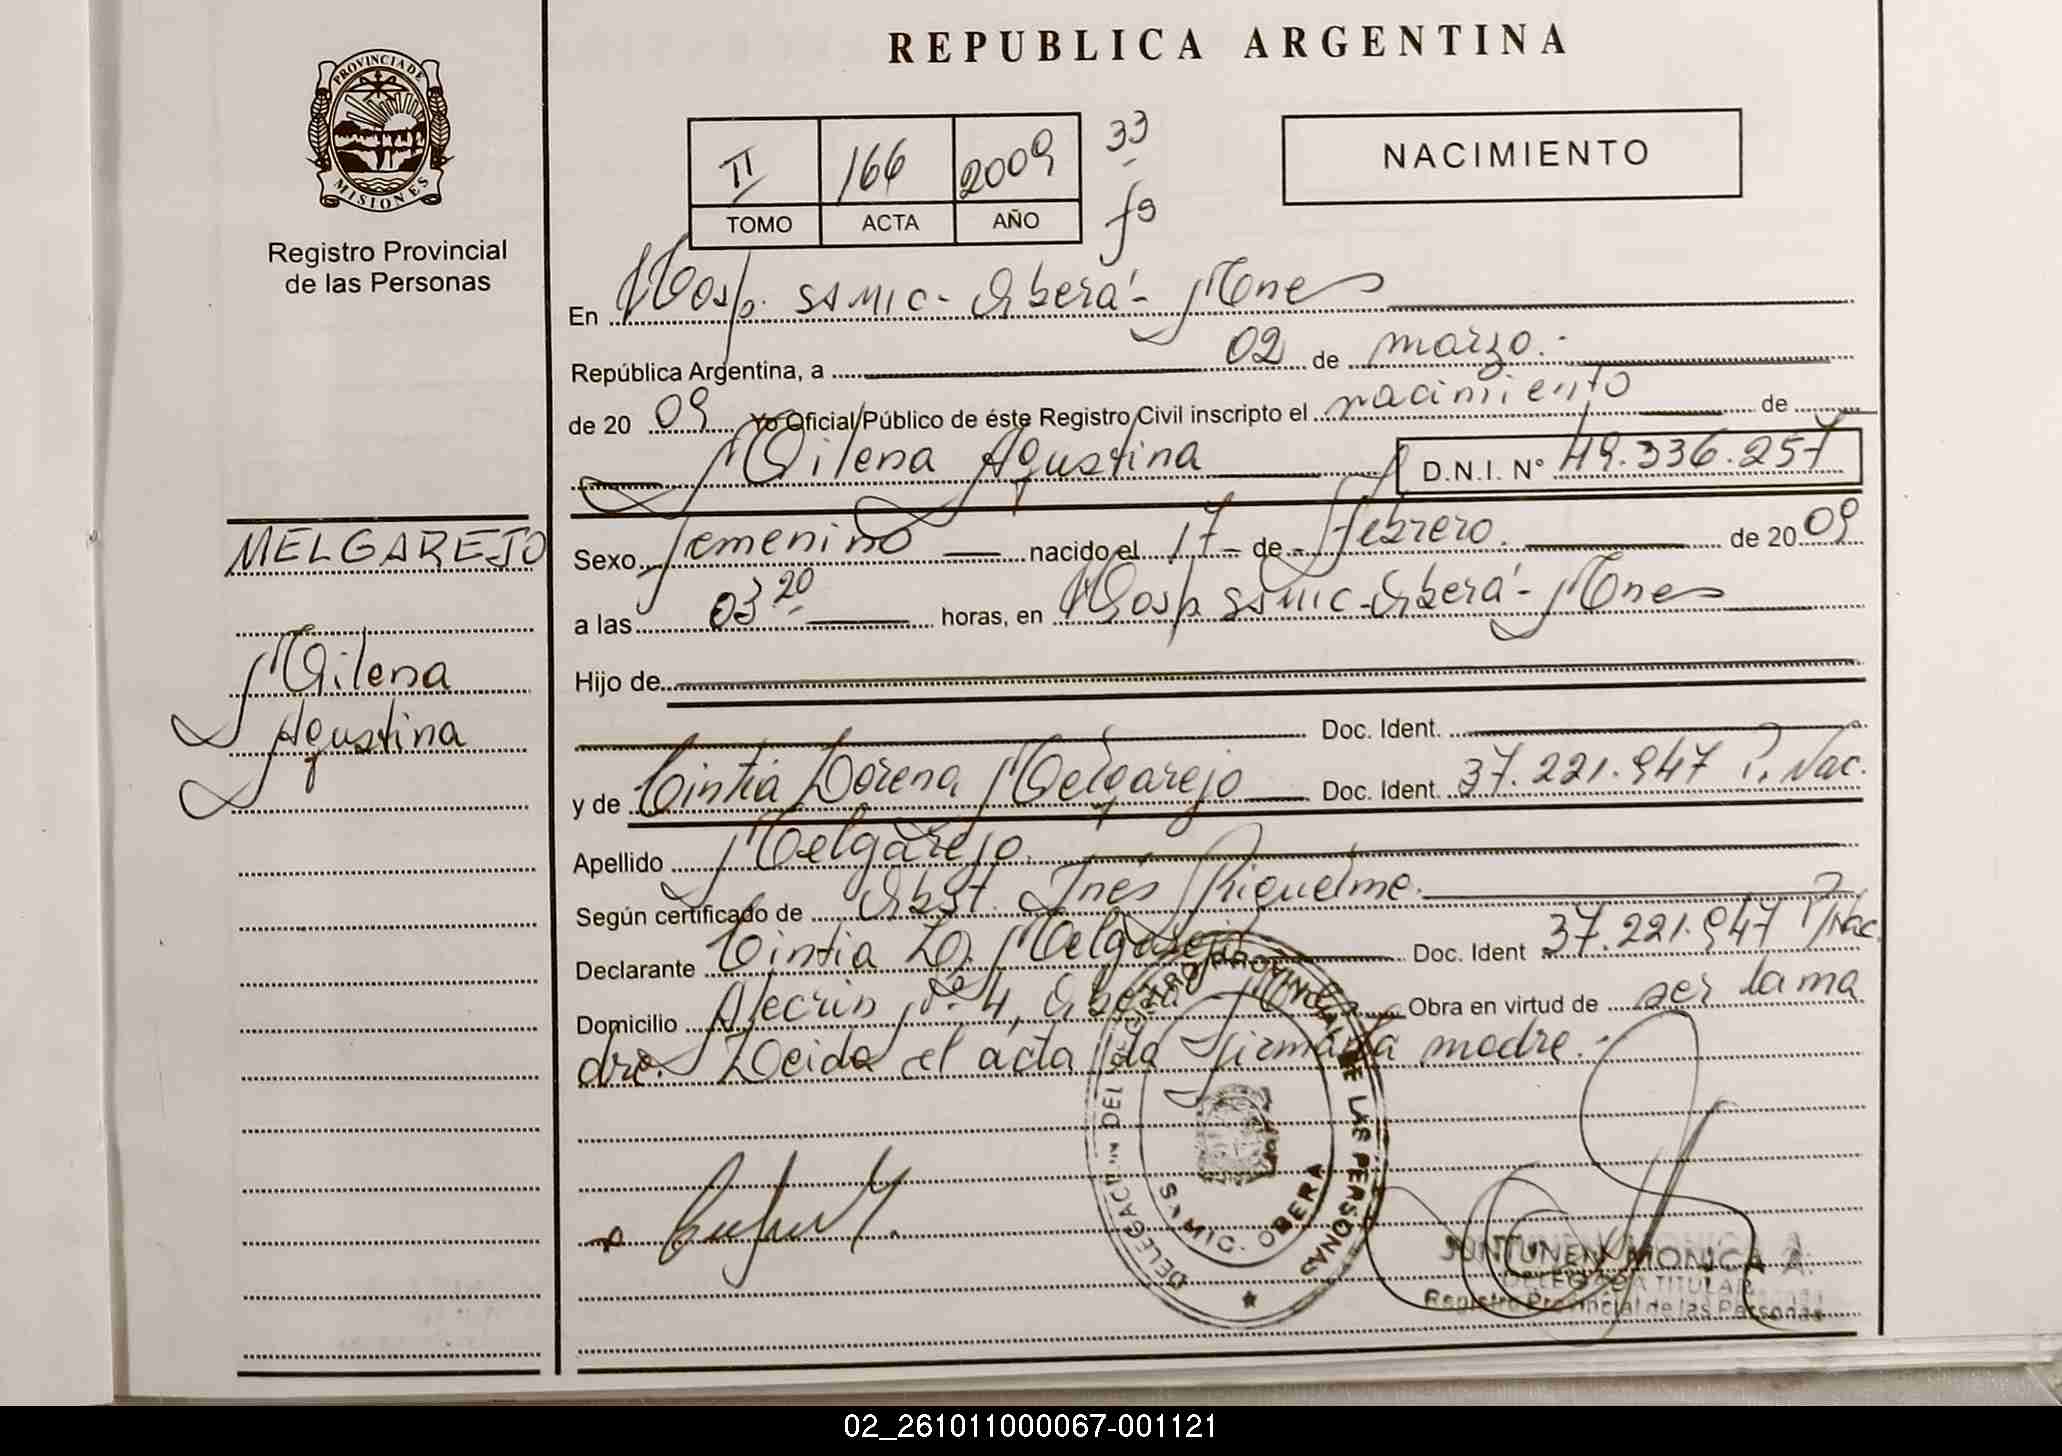 PROVINCIA DE
MISIONES
Registro Provincial
de las Personas
MELGAREJO
Milena
Agustina
REPUBLICA ARGENTINA
II 166 2009 33
TOMO ACTA AÑO fs
NACIMIENTO
En Hosp. SAMIC - Oberá - Mnes
República Argentina, a 02 de marzo.-
de 20 09 Yo Oficial Público de éste Registro Civil inscripto el nacimiento de
Milena Agustina D.N.I. N° 49.336.257
Sexo femenino nacido el 17 de Febrero. de 20 09
a las 03 20 horas, en Hosp. SAMIC - Oberá - Mnes
Hijo de
Doc. Ident.
y de Cintia Lorena Melgarejo Doc. Ident. 37.221.947 P. Nac.
Apellido Melgarejo.
Según certificado de Obst. Inés Riquelme.
Declarante Cintia L. Melgarejo Doc. Ident 37.221.947 P/Nac.
Domicilio Alecrin Nº 4, Oberá - Mnes Obra en virtud de ser la ma
dre. Leida el acta la firma la madre.-
DELEGACION DEL REGISTRO PROVINCIAL DE LAS PERSONAS
SAMIC. OBERA
JUNTUNEN MONICA A.
DELEGADA TITULAR
Registro Provincial de las Personas
02_261011000067-001121